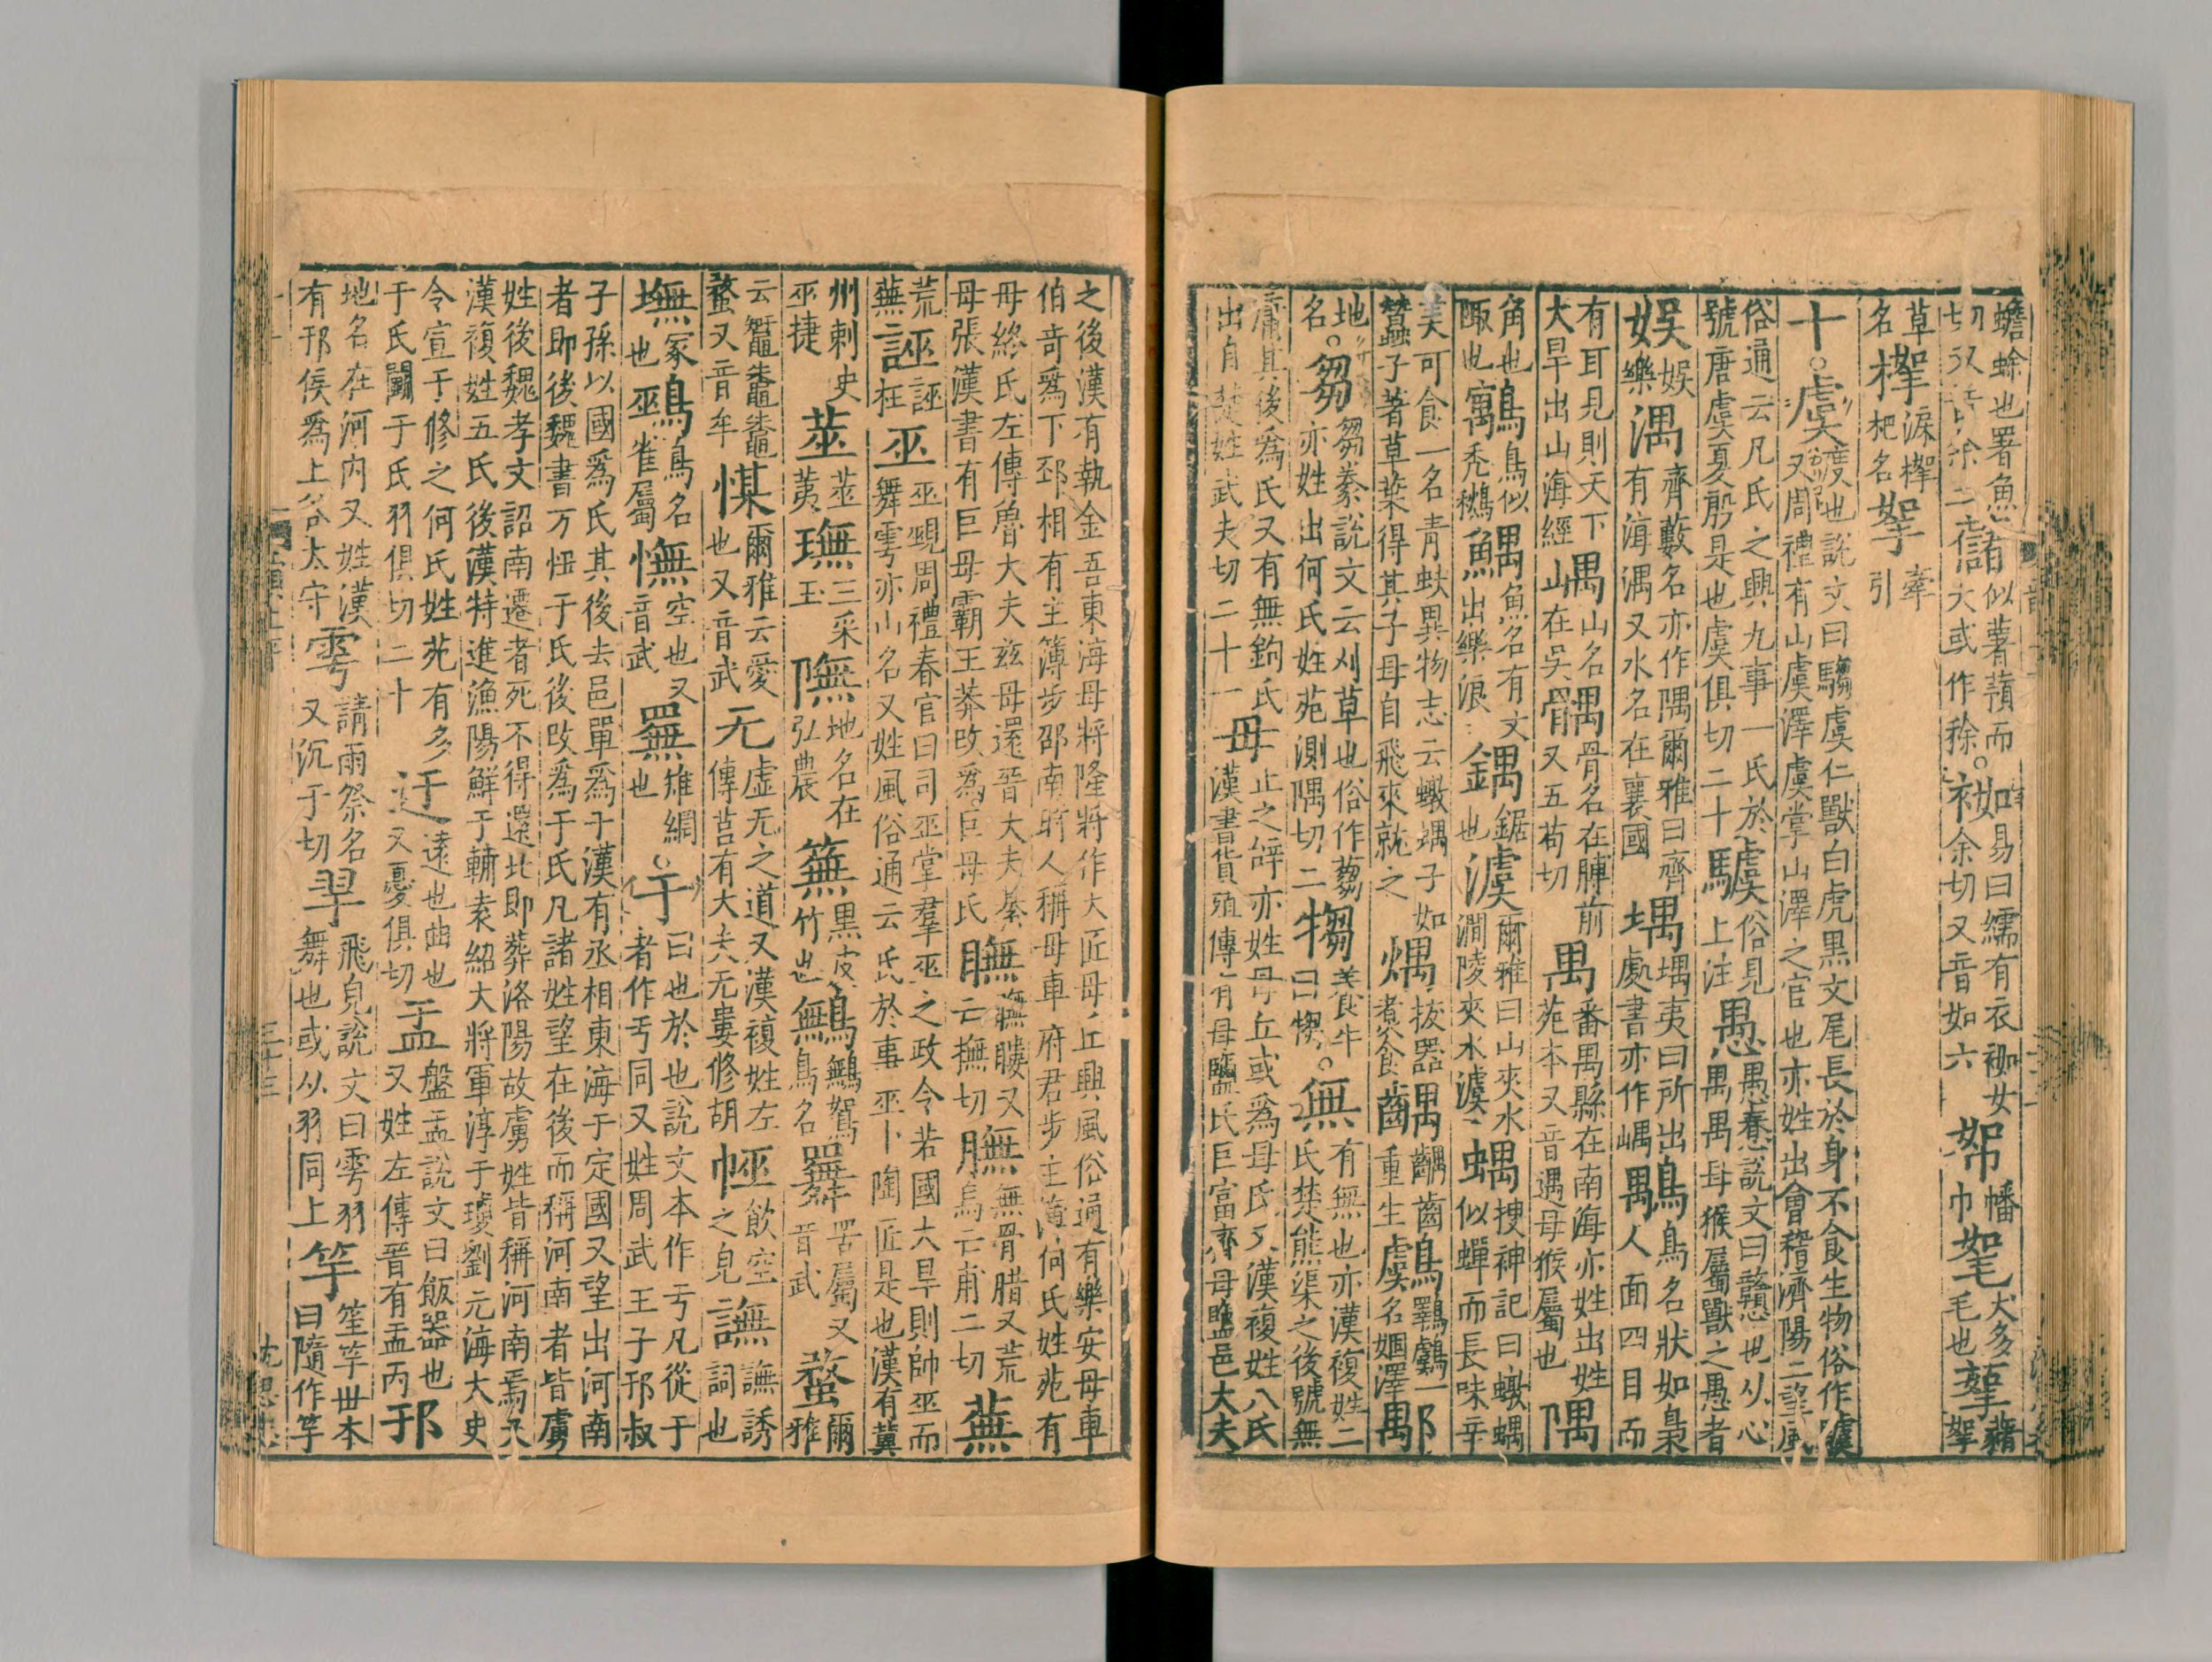 蟾蜍也署魚切又音余二儲似薯蕷而大或作蒣○袽易曰繻有衣袽女余切又音如六帤幡巾㲽犬多毛也蕠豬
草名㮟淭㮟杷名挐牽引
十○虞度也說文曰騶虞仁獸白虎黑文尾長於身不食生物俗作䖏又周禮有山虞澤虞掌山澤之官也亦姓出會稽濟陽二望風
俗通云凡氏之興九事一氏於號唐虞夏殷是也虞俱切二十驉俗見上注愚愚惷說文曰戇也从心禺禺母猴屬獸之愚者
娛娛樂湡齊藪名亦作隅爾雅曰齊有海湡又水名在襄國堣堣夷曰所出處書亦作嵎鸆鳥名狀如梟人面四目而
有耳見則天下大旱出山海經嵎山名在吳髃骨名在膊前骨又五苟切禺番禺縣在南海亦姓出姓苑本又音遇母猴屬也隅
角也陬也鳥似禿鶖䰻魚名有文出樂浪鍝鋸也澞爾雅曰山夾水澗陵夾水澞蝺搜神記曰蠍蝺似蟬而長味辛
美可食一名青蚨異物志云蠍蝺子如蠶子著草葉得其子母自飛來就之㷒煮食齵齵齒重生鸆羇鸆一名婟澤
地名○芻芻豢說文云刈草也俗作蒭亦姓出何氏姓苑測隅切二犓養牛曰犓○無有無也亦漢複姓二氏楚熊渠之後號無
庸其後爲氏又有無鉤氏出自楚姓武夫切二十一毋止之辭亦姓毋丘或爲毋氏又漢複姓八氏漢書貨殖傳有毋鹽氏巨富齊毋鹽邑大夫
之後漢有執金吾東海毋將隆將作大匠毋丘興風俗通有樂安毋車伯奇爲下邳相有主簿步邵南時人稱毋車府君步主簿何氏姓苑有
毋終氏左傳魯大夫茲毋還晉大夫綦毋張漢書有巨毋霸王莽改爲巨毋氏膴無骨腊又荒烏切又亡甫切二蕪
荒蕪誣誣枉巫巫覡周禮春官曰司巫掌羣巫之政令若國大旱則帥巫而舞雩亦山名又姓風俗通云氏於事巫卜陶匠是也漢有冀
州刺史巫捷莁莁荑璑三采玉䧁地名在弘農䉑黑皮竹也鷡鷡鴽鳥名䍢罟屬又音武蝥爾雅
云鼅鼄鼄蝥又音牟㷱爾雅云愛也又音武无虛无之道又漢複姓左傳莒有大夫无婁修胡㡔飲空之皃譕譕誘詞也
墲冢也鵐鳥名雀屬憮空也又音武䍢雉網也○于曰也於也說文本作亏凡從于者作亏同又姓周武王子邘叔
子孫以國爲氏其後去邑單爲于漢有丞相東海于定國又望出河南者即後魏書万忸于氏後改爲于氏凡諸姓望在後而稱河南者皆虜
姓後魏孝文詔南遷者死不得還北即葬洛陽故虜姓皆稱河南焉又漢複姓五氏後漢特進漁陽鮮于輔袁紹大將軍淳于瓊劉元海大史
令宣于修之何氏姓苑有多于氏闟于氏羽俱切二十迂遠也曲也又憂俱切盂盤盂說文曰飯器也又姓左傳晉有盂丙邘
地名在河內又姓漢有邘侯爲上谷太守雩請雨祭名又沉于切䨒飛皃說文曰雩羽舞也或从羽同上竽笙竽世本曰隨作竽